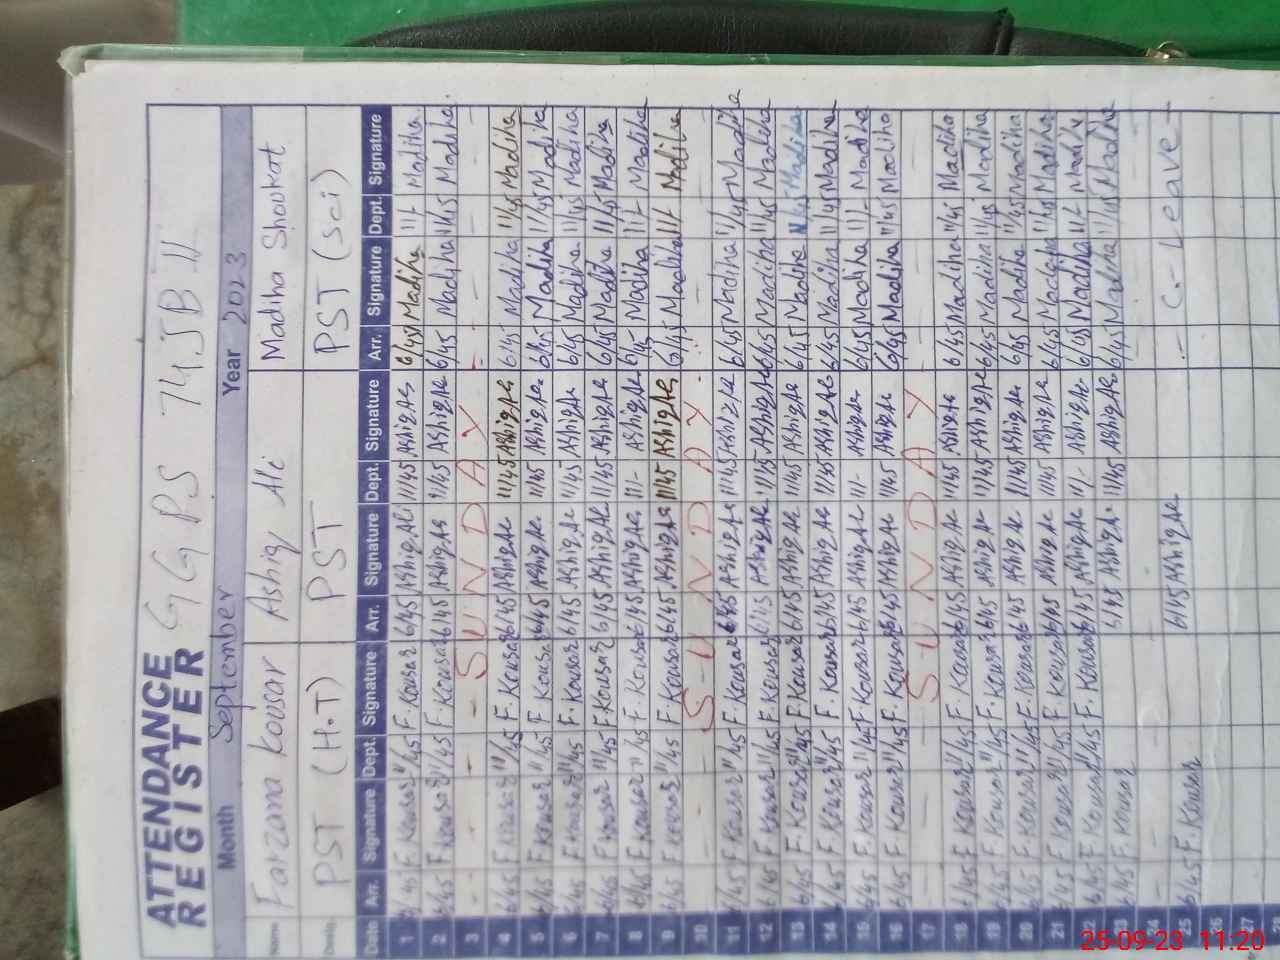 ATTENDANCE
REGISTER GGPS 74 JB II
Month September Year 2023
Name Farzana Kousar Ashiq Ali Madiha Shoukat
Desig. PST (H.T) PST PST (sci)
Date Arr. Signature Dept. Signature Arr. Signature Dept. Signature Arr. Signature Dept. Signature
1 6/45 F. Kousar 11/45 F. Kousar 6/45 Ashiq Ali 11/45 Ashiq Ale 6/45 Madiha 11/- Madiha
2 6/45 F. Kousar 11/45 F. Kousar 6/45 Ashiq Ale 11/45 Ashiq Ale 6/45 Madiha 11/45 Madiha
3 - - - SUNDAY - - -
4 6/45 F. Kousar 11/45 F. Kousar 6/45 Ashiq Ale 11/45 Ashiq Ale 6/45 Madiha 11/45 Madiha
5 6/45 F. Kousar 11/45 F. Kousar 6/45 Ashiq Ale 11/45 Ashiq Ale 6/45 Madiha 11/45 Madiha
6 6/45 F. Kousar 11/45 F. Kousar 6/45 Ashiq Ale 11/45 Ashiq Ale 6/45 Madiha 11/45 Madiha
7 6/45 F. Kousar 11/45 F. Kousar 6/45 Ashiq Ale 11/45 Ashiq Ale 6/45 Madiha 11/45 Madiha
8 6/45 F. Kousar 11/45 F. Kousar 6/45 Ashiq Ale 11/- Ashiq Ale 6/45 Madiha 11/- Madiha
9 6/45 F. Kousar 11/45 F. Kousar 6/45 Ashiq Ale 11/45 Ashiq Ale 6/45 Madiha 11/- Madiha
10 - - - SUNDAY - - -
11 6/45 F. Kousar 11/45 F. Kousar 6/45 Ashiq Ale 11/45 Ashiq Ale 6/45 Madiha 11/45 Madiha
12 6/45 F. Kousar 11/45 F. Kousar 6/45 Ashiq Ale 11/45 Ashiq Ale 6/45 Madiha 11/45 Madiha
13 6/45 F. Kousar 11/45 F. Kousar 6/45 Ashiq Ale 11/45 Ashiq Ale 6/45 Madiha 11/45 Madiha
14 6/45 F. Kousar 11/45 F. Kousar 6/45 Ashiq Ale 11/45 Ashiq Ale 6/45 Madiha 11/45 Madiha
15 6/45 F. Kousar 11/45 F. Kousar 6/45 Ashiq Ale 11/- Ashiq Ale 6/45 Madiha 11/- Madiha
16 6/45 F. Kousar 11/45 F. Kousar 6/45 Ashiq Ale 11/45 Ashiq Ale 6/45 Madiha 11/45 Madiha
17 - - - SUNDAY - - -
18 6/45 F. Kousar 11/45 F. Kousar 6/45 Ashiq Ale 11/45 Ashiq Ale 6/45 Madiha 11/45 Madiha
19 6/45 F. Kousar 11/45 F. Kousar 6/45 Ashiq Ale 11/45 Ashiq Ale 6/45 Madiha 11/45 Madiha
20 6/45 F. Kousar 11/45 F. Kousar 6/45 Ashiq Ale 11/45 Ashiq Ale 6/45 Madiha 11/45 Madiha
21 6/45 F. Kousar 11/45 F. Kousar 6/45 Ashiq Ale 11/45 Ashiq Ale 6/45 Madiha 11/45 Madiha
22 6/45 F. Kousar 11/45 F. Kousar 6/45 Ashiq Ale 11/- Ashiq Ale 6/45 Madiha 11/- Madiha
23 6/45 F. Kousar 6/45 Ashiq Ale 11/45 Ashiq Ale 6/45 Madiha 11/45 Madiha
24 - - -
25 6/45 F. Kousar 6/45 Ashiq Ale - C- Leave -
26
27
25-09-23 11:20